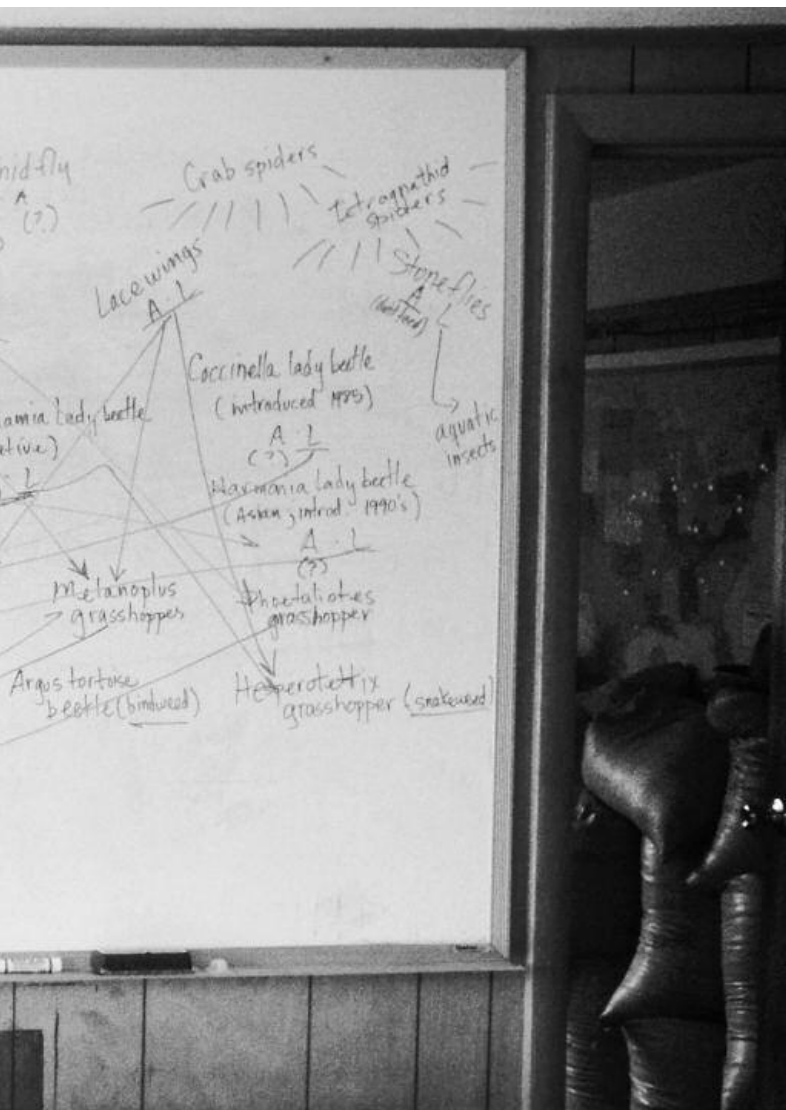 nidfly
A
(?)
Crab spiders
Tetragnathid
spiders
Lacewings
A · L
Stoneflies
A L
Coccinella lady beetle
(introduced 1985)
A · L
(?)
aquatic
insects
amia Lady beetle
ative)
L
Harmonia lady beetle
(Asian, introd. 1990's)
A · L
(?)
Melanoplus
grasshoppes
Phoetaliotes
grasshopper
Argus tortoise
beetle (bindweed)
Hesperotettix
grasshopper (snakeweed)